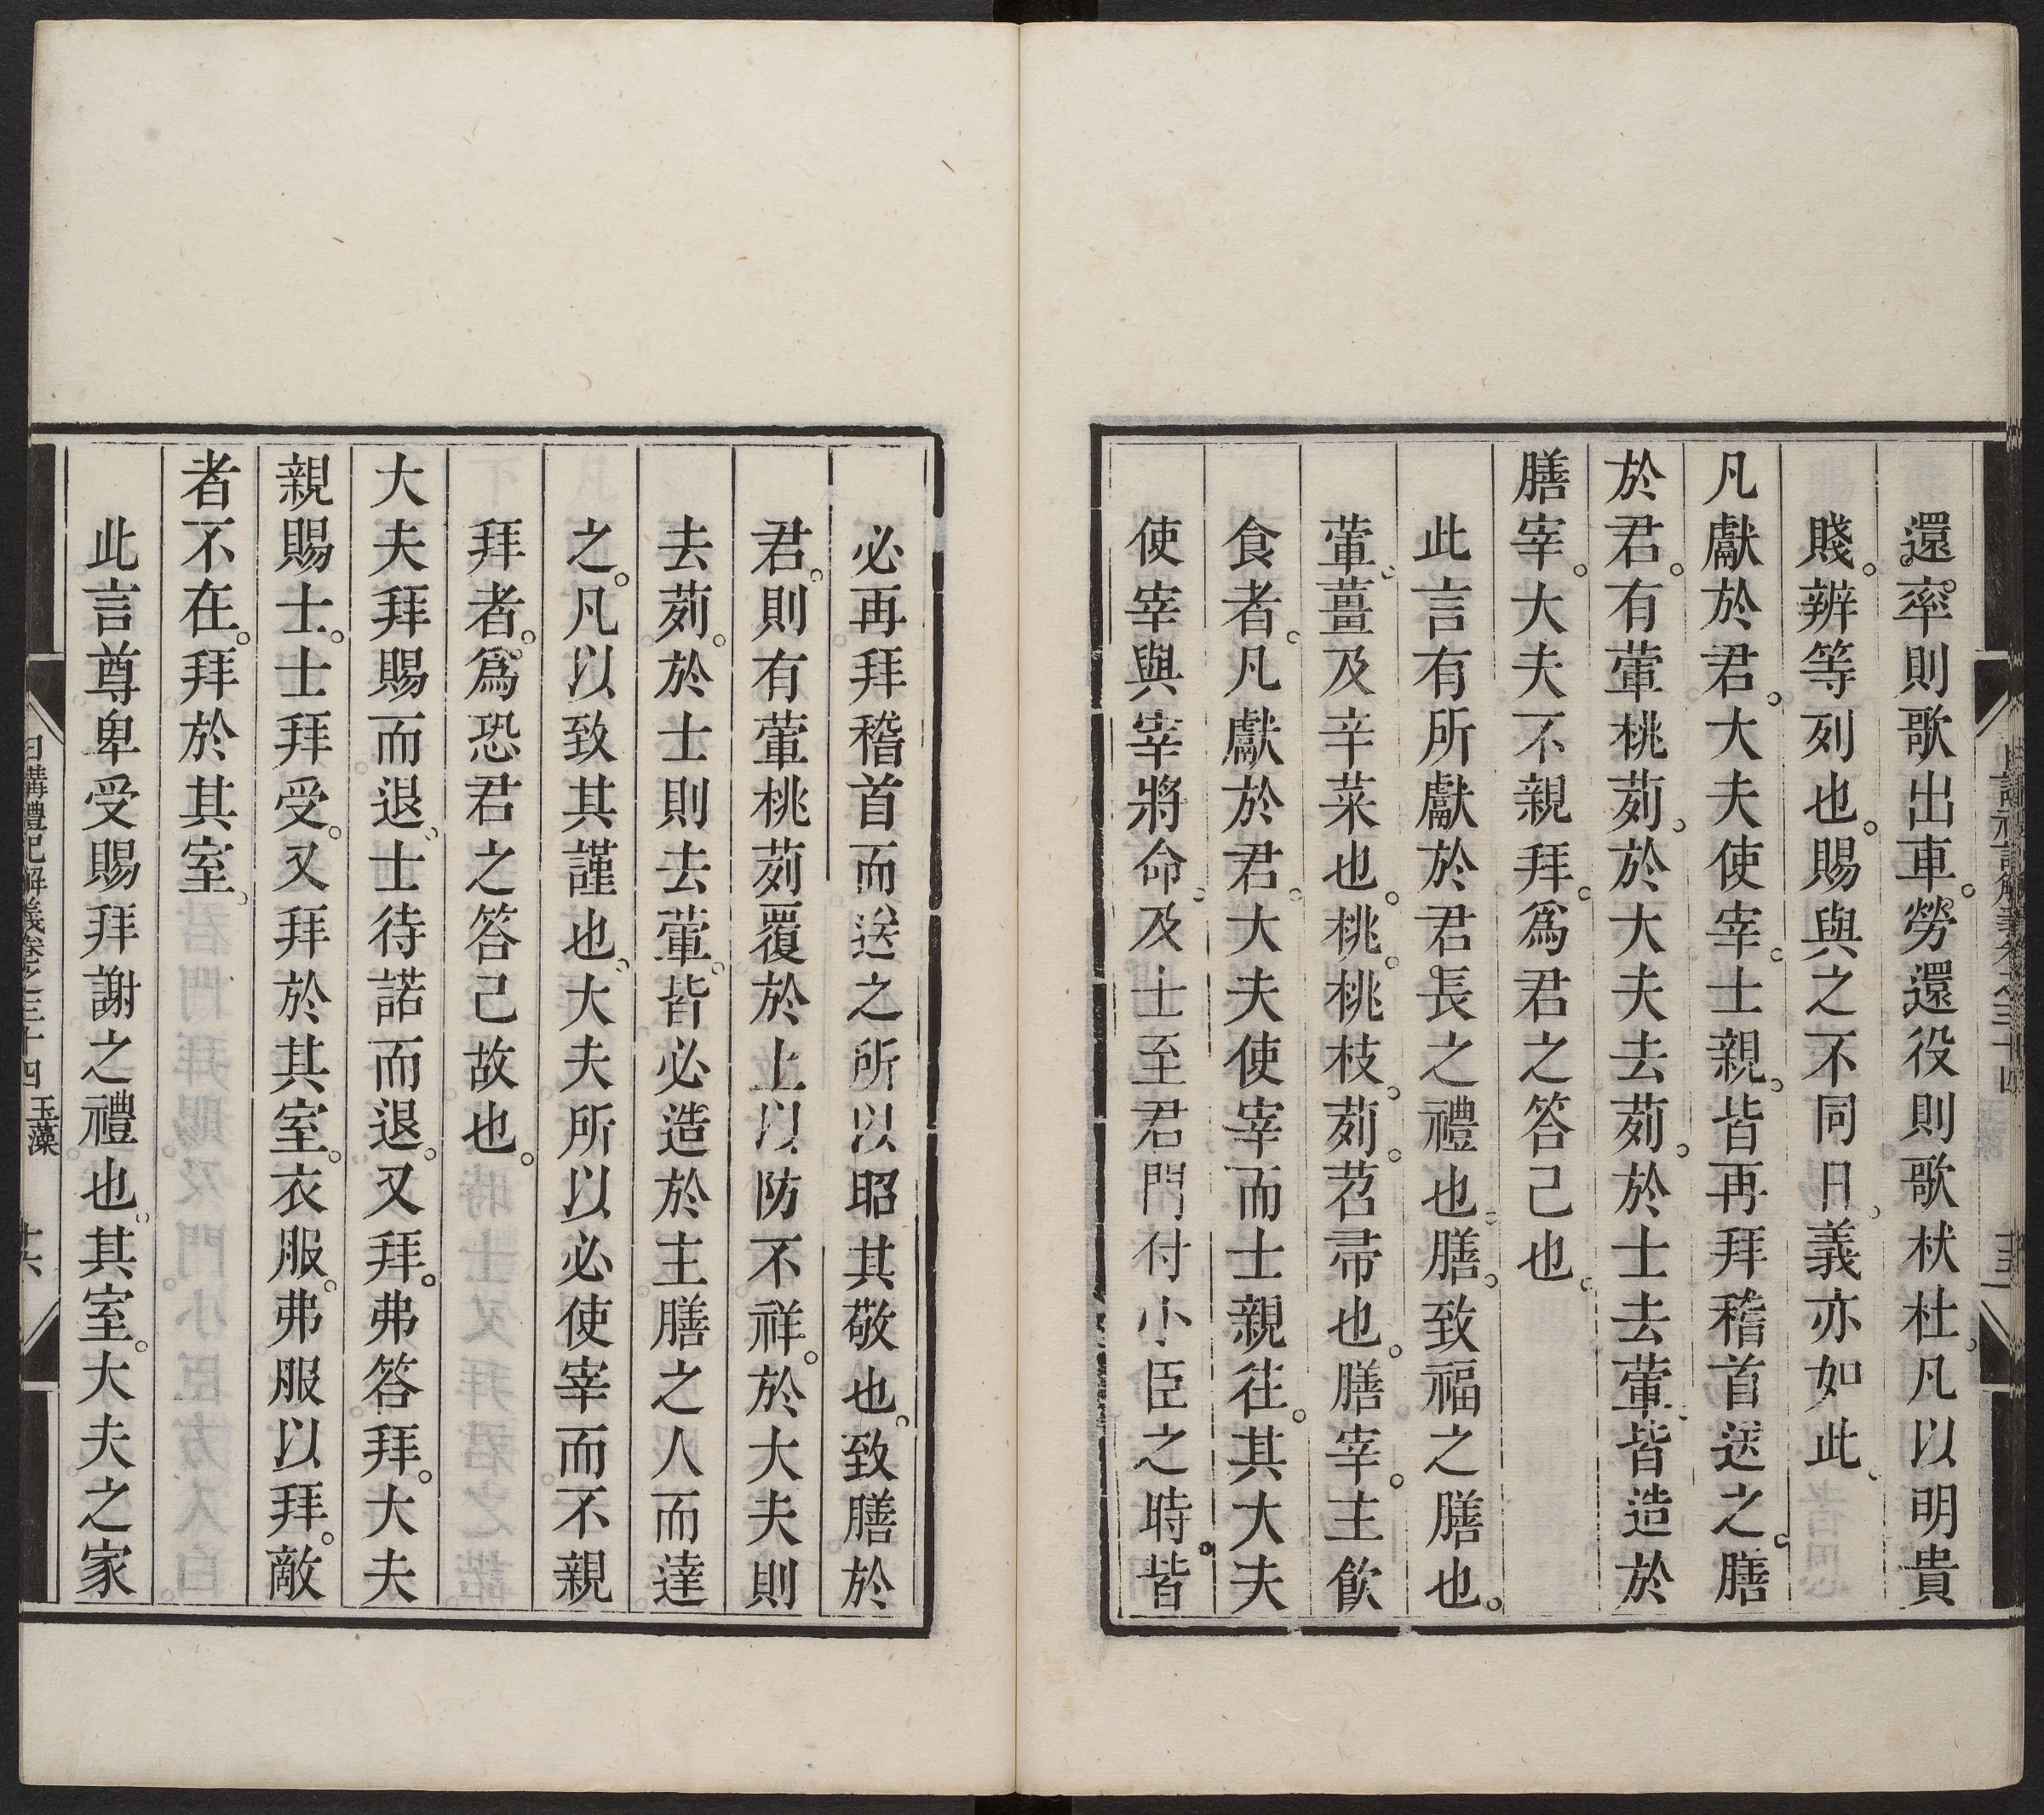 還。率則歌出車。勞還役則歌杕杜。凡以明貴
賤。辨等列也。賜與之不同日。義亦如此。
凡獻於君。大夫使宰。士親。皆再拜稽首送之。膳
於君。有葷桃茢。於大夫去茢。於士去葷。皆造於
膳宰。大夫不親拜。爲君之答己也。
此言有所獻於君長之禮也。膳。致福之膳也。
葷。薑及辛菜也。桃。桃枝。茢。苕帚也。膳宰。主飮
食者。凡獻於君。大夫使宰而士親往。其大夫
使宰與宰將命。及士至君門付小臣之時。皆
必再拜稽首而送之所以昭其敬也。致膳於
君。則有葷桃茢覆於上以防不祥。於大夫則
去茢。於士則去葷。皆必造於主膳之人而達
之。凡以致其謹也。大夫所以必使宰而不親
拜者。爲恐君之答己故也。
大夫拜賜而退。士待諾而退。又拜。弗答拜。大夫
親賜士。士拜受。又拜於其室。衣服。弗服以拜。敵
者不在。拜於其室。
此言尊卑受賜拜謝之禮也。其室。大夫之家
日講禮記解義卷之三十四 玉藻 十六